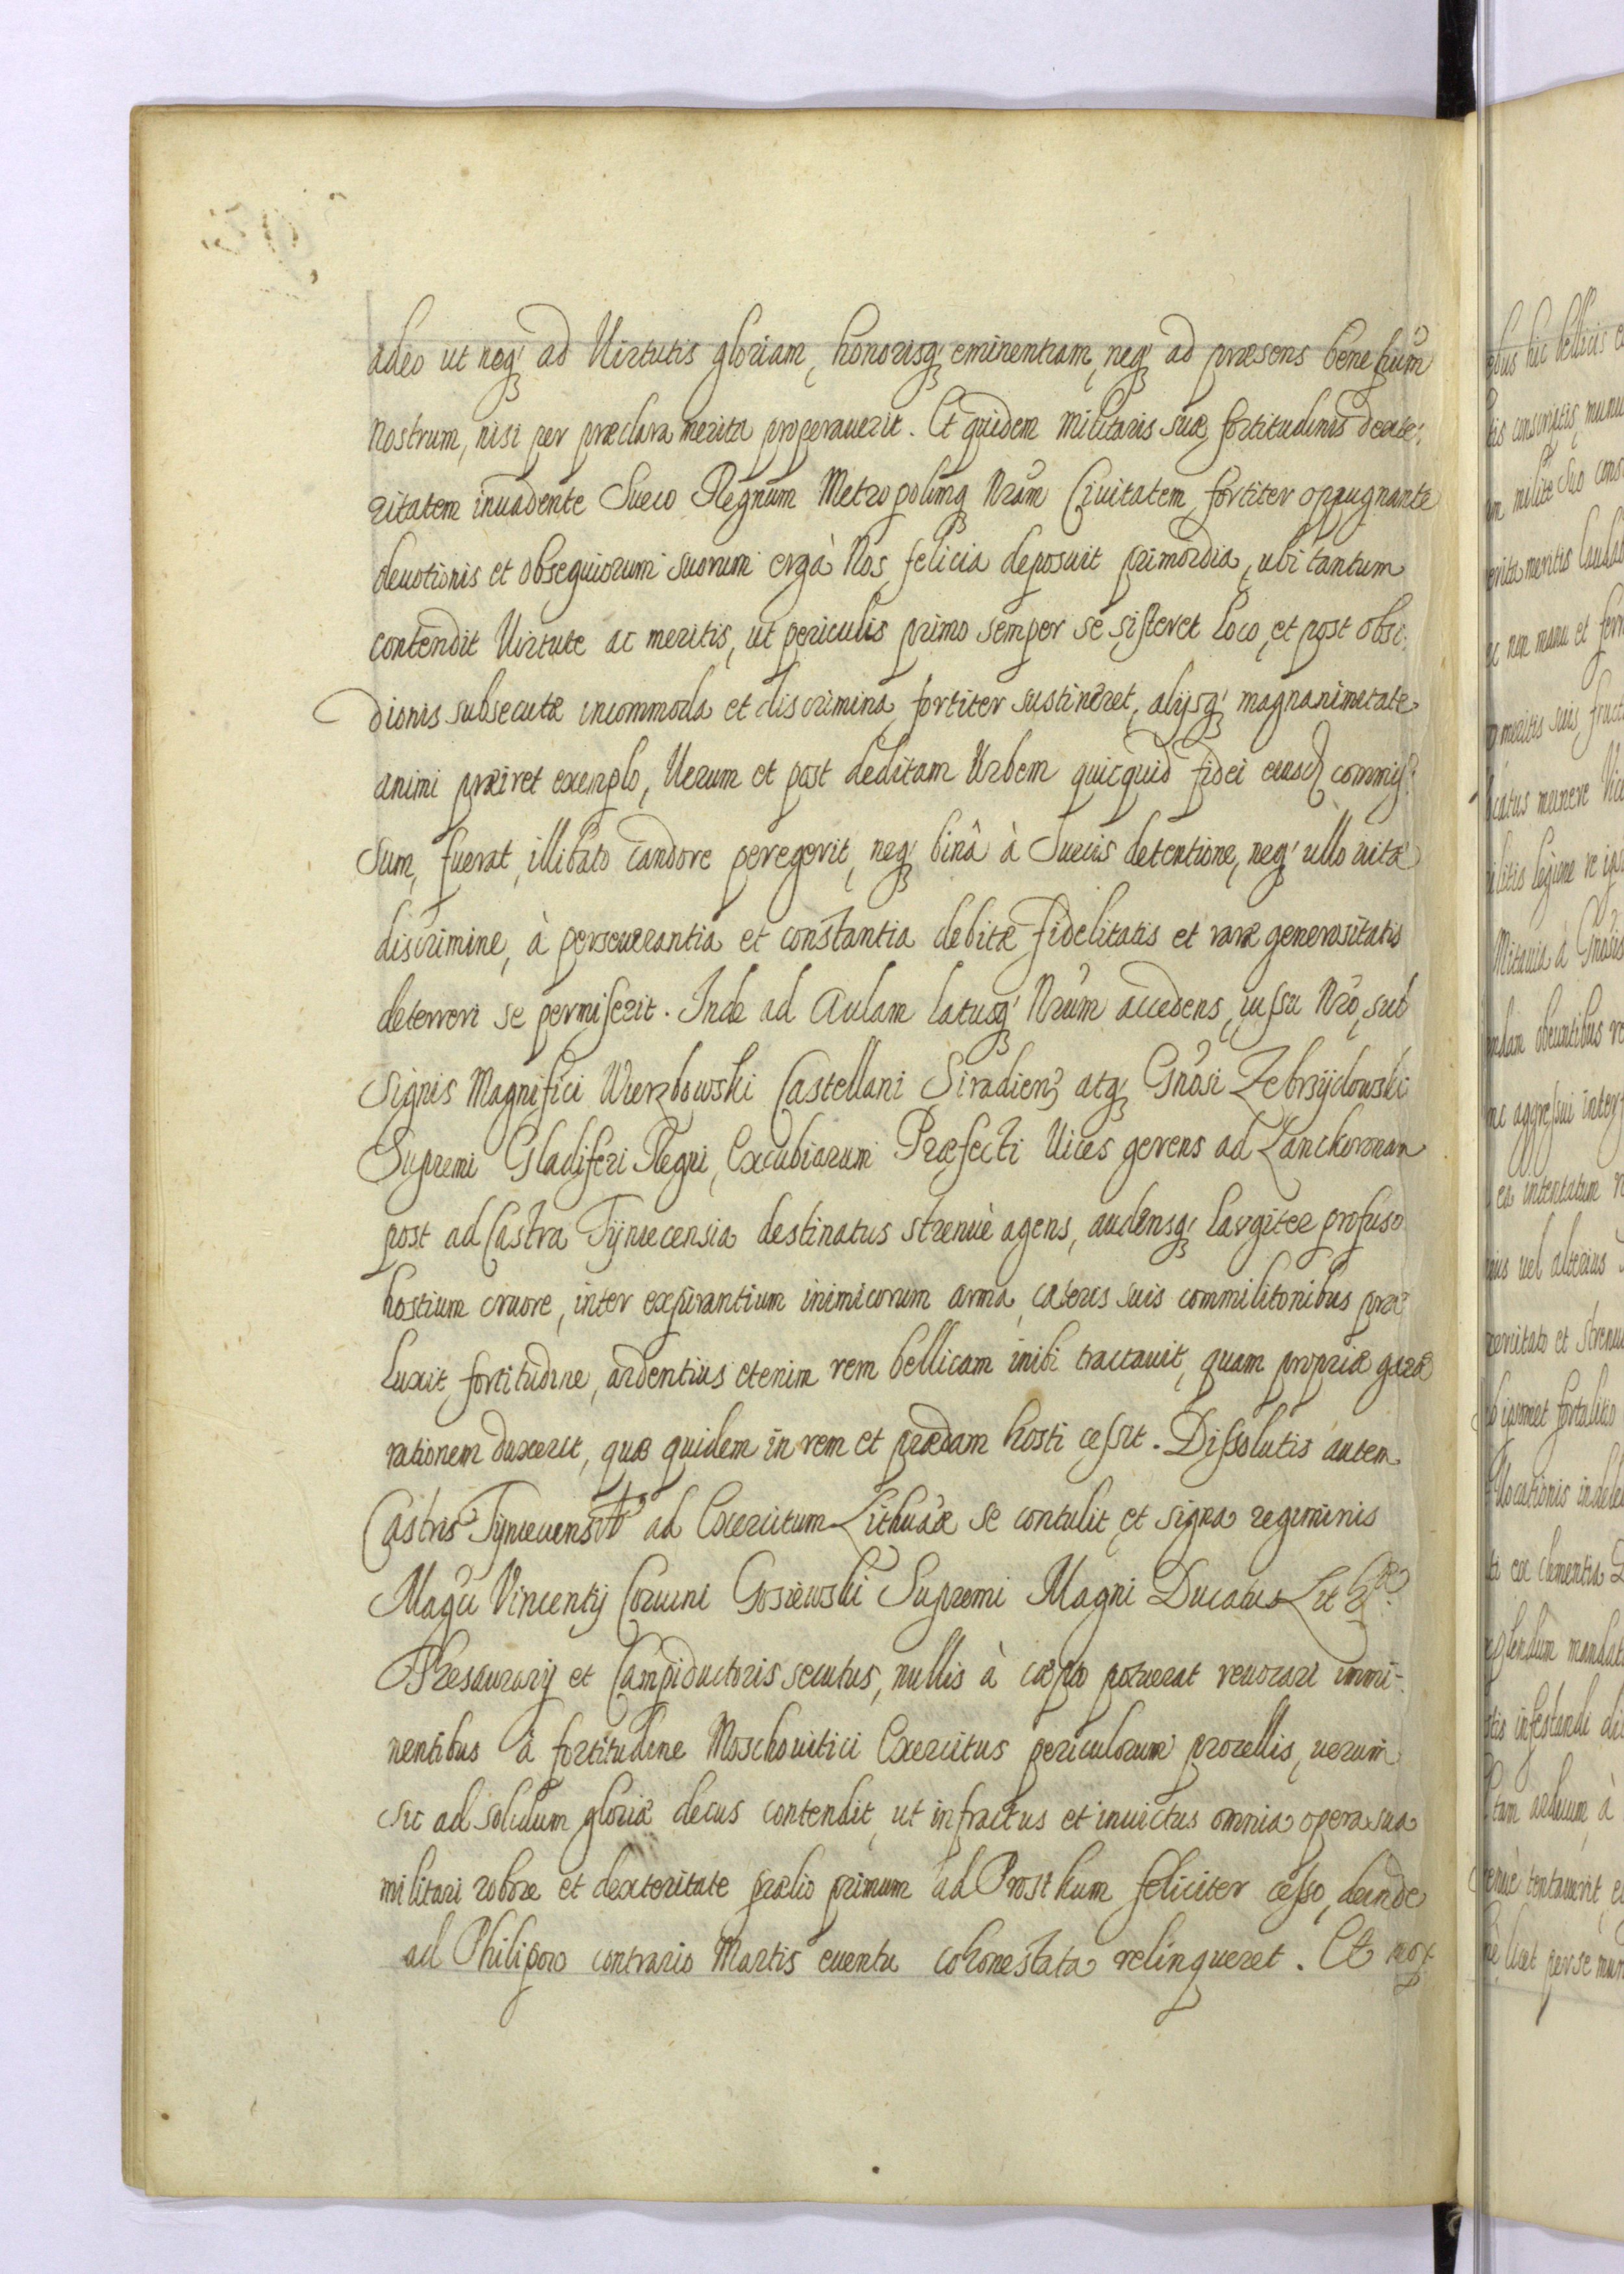 adeo ut neq́ ad Virtutis gloriam, honorisq́ eminentiam, neq́ ad præsens benefium̃
nostrum, nisi per præclara merita properauerit. Et quidem militaris suæ fortitudinis dexte:
ritatem inuadente Sueco Regnum Metropolimq Nr̃am Ciuitatem fortiter oppugnante
deuotionis et obsequiorum suorum ergà Nos felicia deposuit primordia, ubi tantum
contendit Virtute ac meritis, ut periculis primo semper se sisteret loco, et post obsi:
dionis subsecutæ incommoda et discrimina fortiter sustineret, alijsq́ magnanimitate
animi præiret exemplo, Verum et post deditam Urbem quicquid fidei eiusd commis:
sum, fuerat, illibato candore peregerit, neq́ binâ à Suecis detentione, neq́ ullo uitæ
discrimine, à perseuerantia et constantia debitæ fidelitatis et raræ generositatis
deterreri se permiserit. Inde ad Aulam latusq́ Nr̃um accedens, iussu Nr̃o, sub
signis Magnifici Wierzbowski Castellani Siradien̄ atq́ Gn̄osi Zebrzydowski
Supremi Gladiferi Regni, Excubiarum Præfecti Vices gerens ad Lanckoronam
post ad Castra Tynecensia destinatus strenuè agens, audensq́ largiter profuso
hostium cruore, inter expirantium inimicorum arma, cæteris suis commilitonibus præ
luxit fortitudine, ardentius etenim rem bellicam inibi tractauit, quam propriæ gazæ
rationem duxerit, quæ quidem in rem et prædam hosti cessit. Dissolutis autem
Castris ad Exercitum Lithuāæ se contulit, et signa regiminis
Magći Vincentij Coruini Gosiewski Supremi Magni Ducatus Lit
Thesaurarij et Campiductoris secutus, nullis à cæpto potuerat reuocari immi-
nentibus à fortitudine Moschouitici Exercitus periculorum procellis, uerum
sic ad solidum gloriæ decus contendit, ut infractus et inuictus omnia opera sua
militari robore et dexteritate prælio primum ad Prostkum feliciter cesso, deinde
ad Philipow contrario Martis euentu cohonestata relinqueret. Et mox